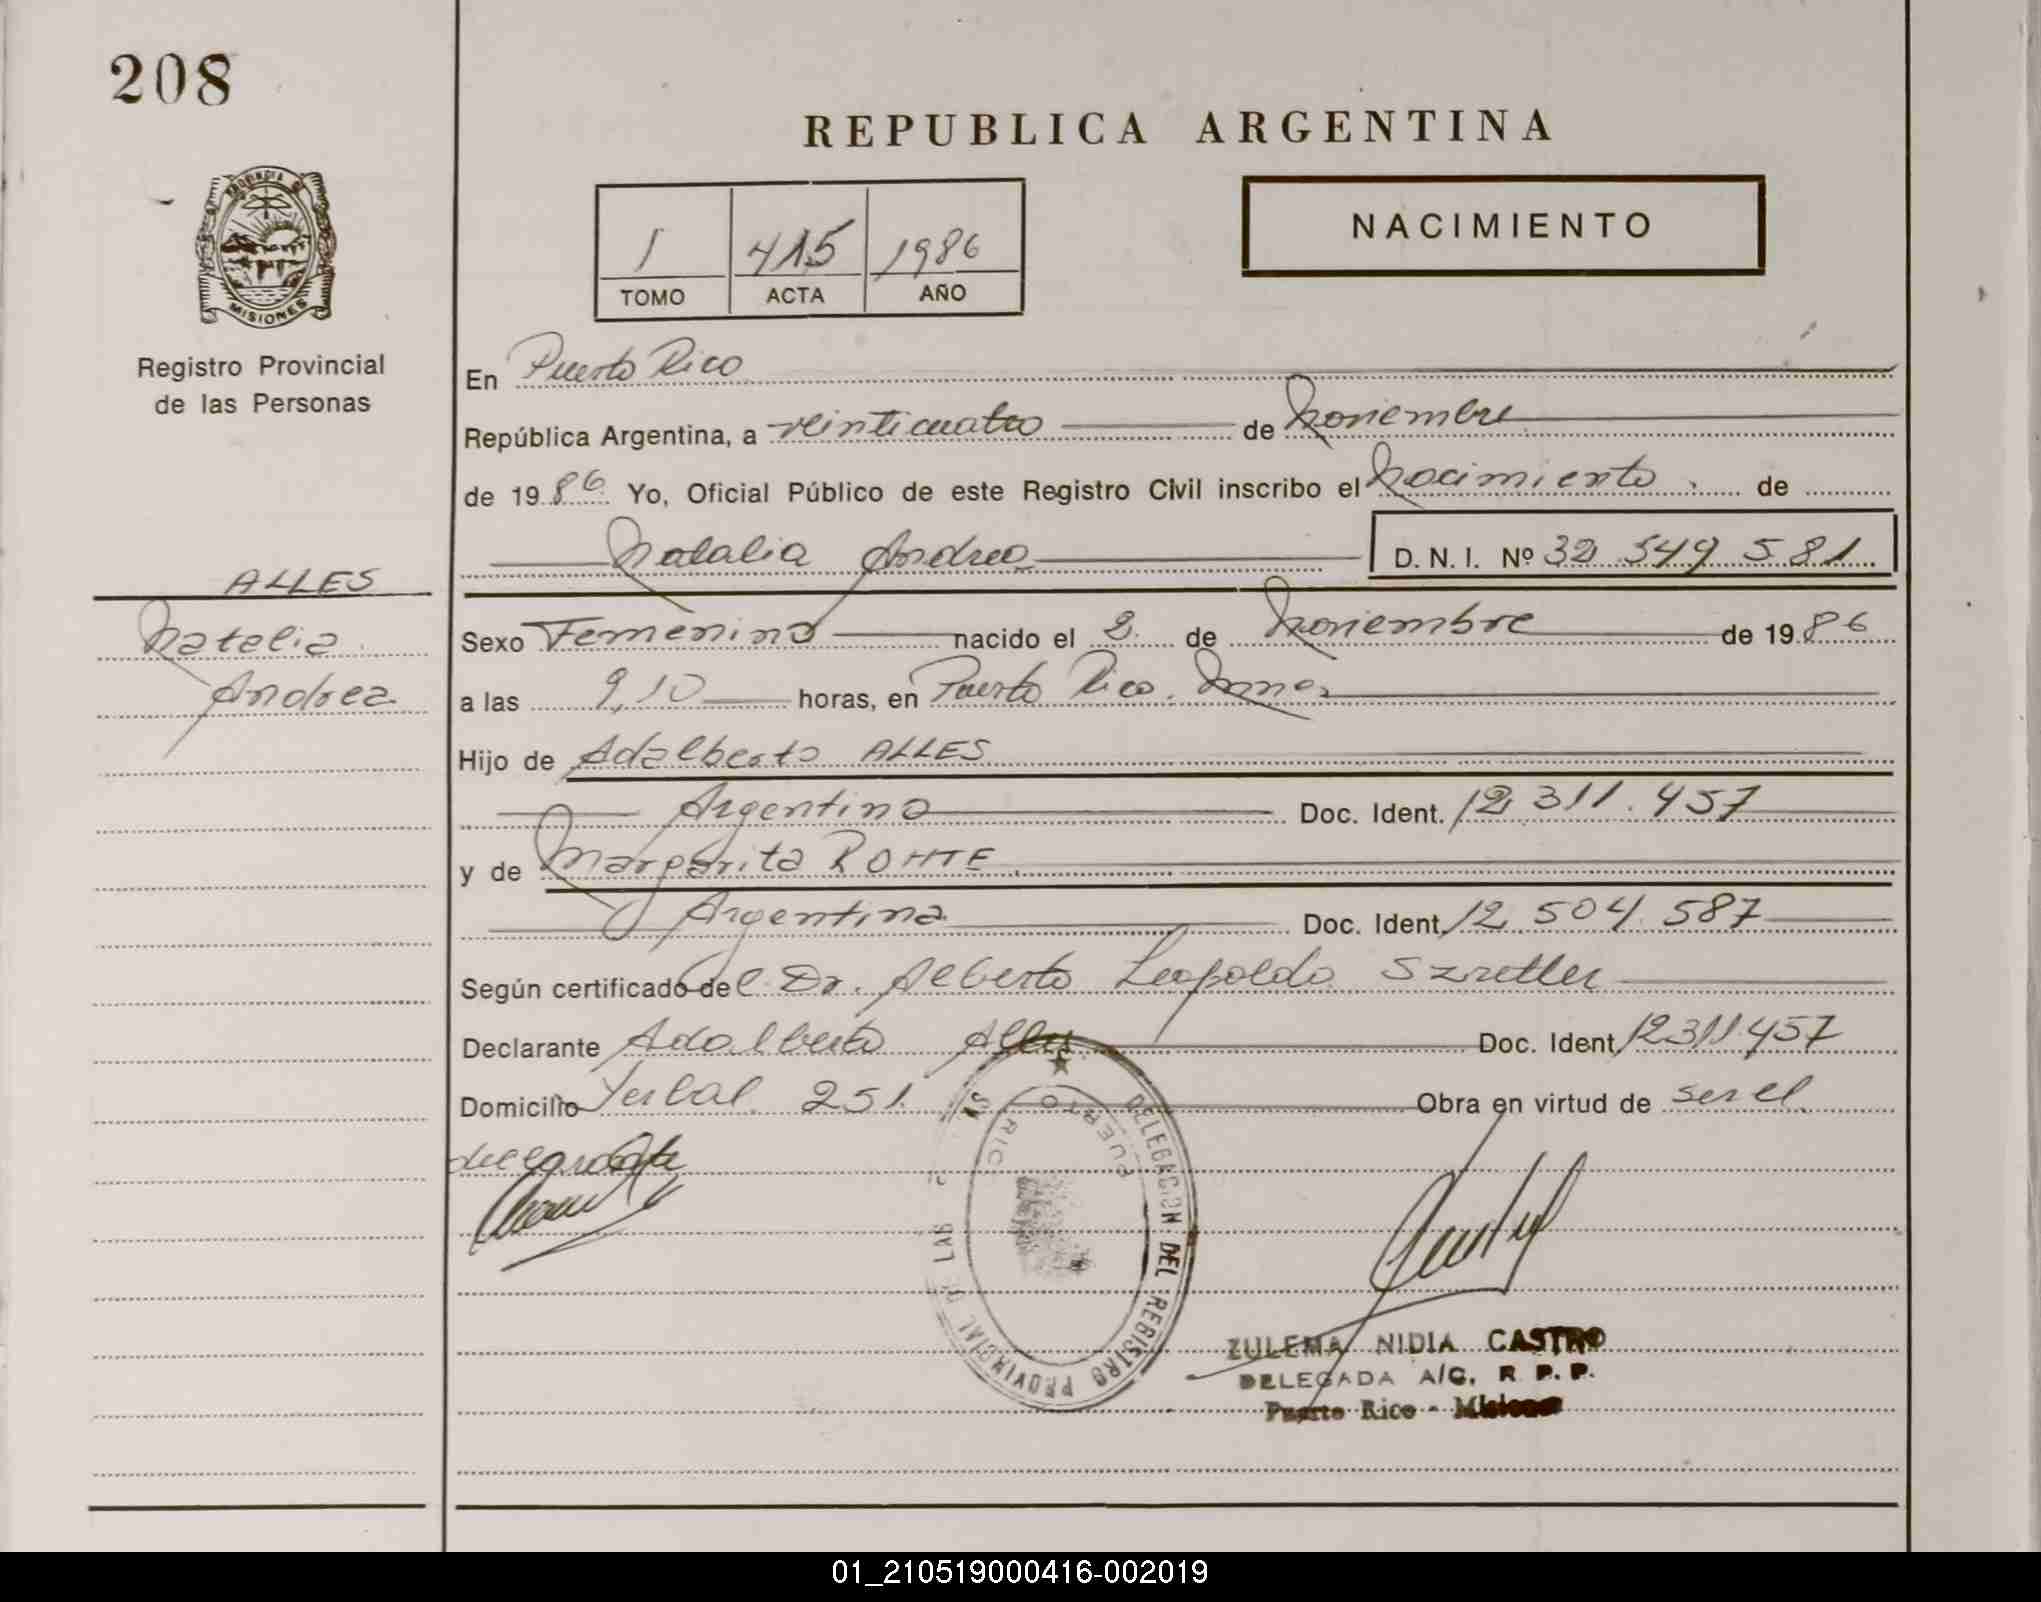 208
REPUBLICA ARGENTINA
1 415 1986
TOMO ACTA AÑO
NACIMIENTO
PROVINCIA DE
MISIONES
Registro Provincial
de las Personas
En Puerto Rico
República Argentina, a veinticuatro de Noviembre
de 19 86 Yo, Oficial Público de este Registro Civil inscribo el Nacimiento de
Natalia Andrea D. N. I. Nº 32 549 581
ALLES
Natalia
Andrea
Sexo Femenino nacido el 2 de Noviembre de 19 86
a las 9,10 horas, en Puerto Rico
Hijo de Adalberto ALLES
Argentino Doc. Ident. 12 311.457
y de Margarita ROHTE
Argentina Doc. Ident. 12.504.587
Según certificado del Dr. Alberto Leopoldo Szretter
Declarante Adalberto Alles Doc. Ident. 12311457
Domicilio Yerbal 251 Obra en virtud de ser el
DELEGACION DEL REGISTRO PROVINCIAL DE LAS
PUERTO RICO
ZULEMA NIDIA CASTRO
DELEGADA A/C. R. P. P.
Puerto Rico - Misiones
01_210519000416-002019